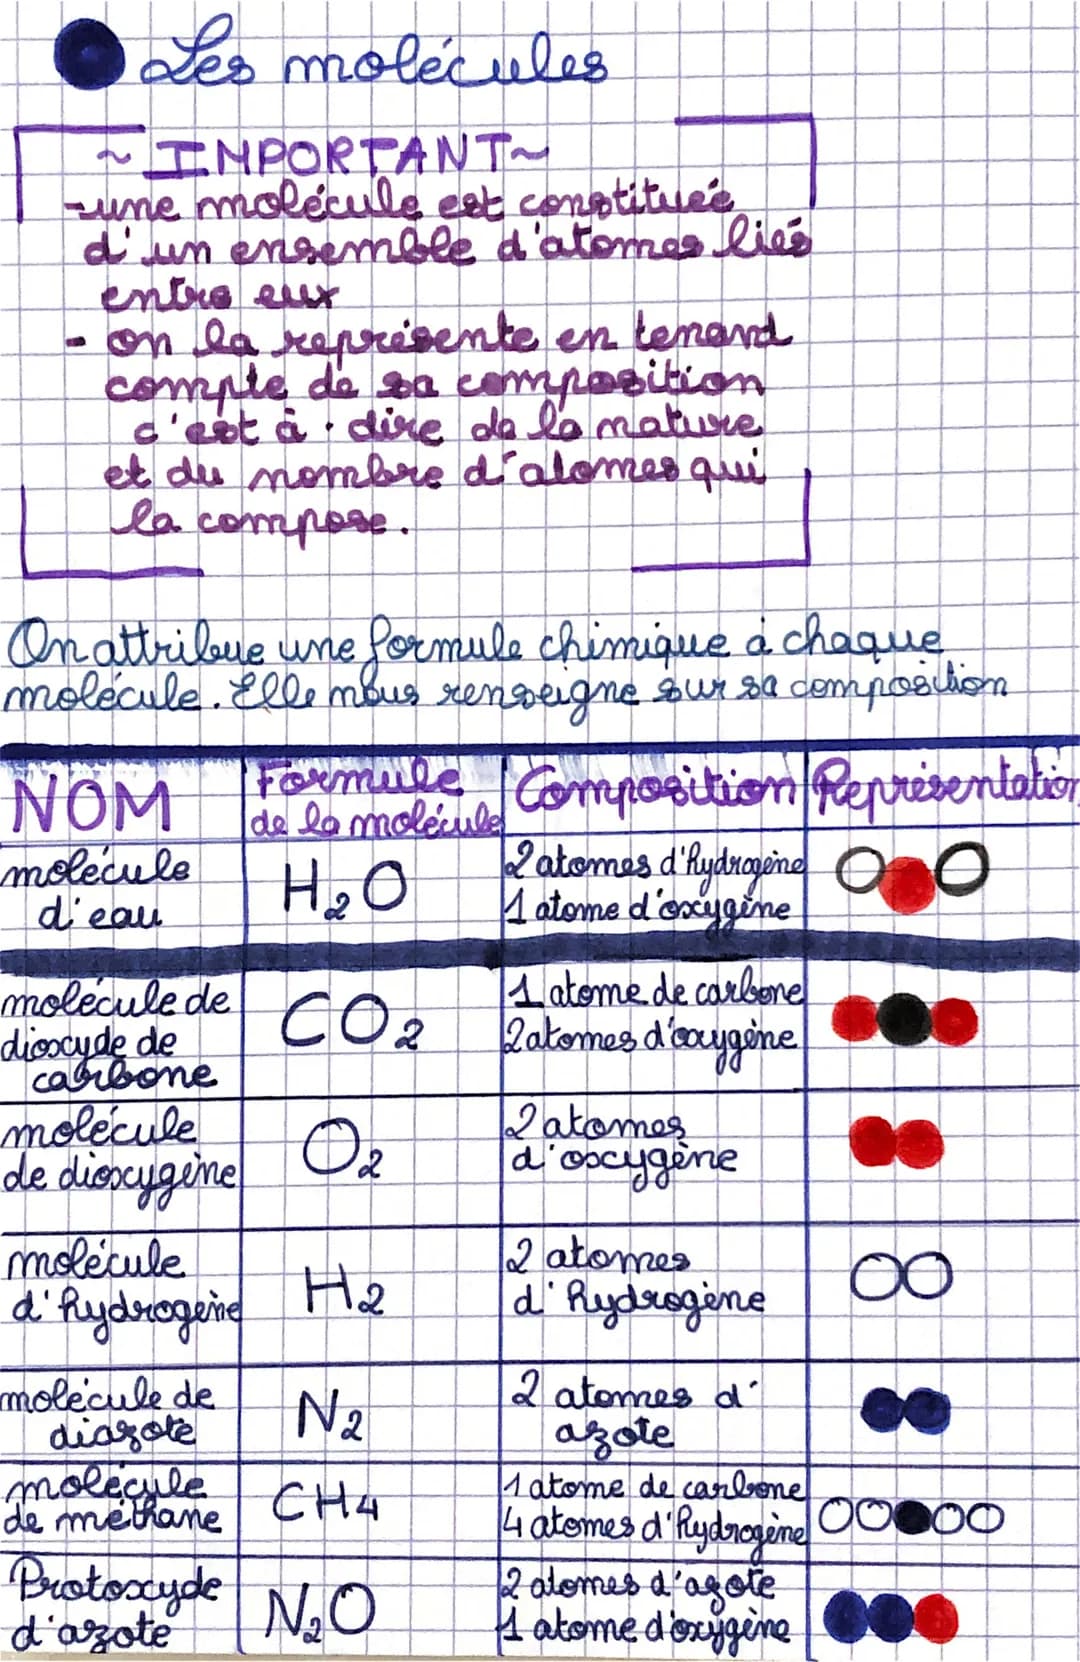 Les molécules
~ IMPORTANT ~
- une molécule est constituée
d'un ensemble d'atomes liés
entre eux
- on la représente en tenand
compte de sa composition
c'est à · dire de la nature
et du nombre d'atomes qui
la compose.
On attribue une formule chimique à chaque
molécule. Elle nous renseigne sur sa composition
NOM
Formule
de la molécule
Composition
Représentation
molécule
d'eau
H₂O
2 atomes d'hydrogène
1 atome d'oxygène
molécule de
dioxyde de
carbone
CO₂
1 atome de carbone
2 atomes d'oxygène
molécule
de dioxygène
O₂
2 atomes
d'oxygène
molécule
d'hydrogène
H₂
2 atomes
d'hydrogène
molécule de
diazote
N₂
2 atomes d'
azote
molécule
de méthane
CH₄
1 atome de carbone
4 atomes d'hydrogène
Protoxyde
d'azote
N₂O
2 atomes d'azote
1 atome d'oxygène